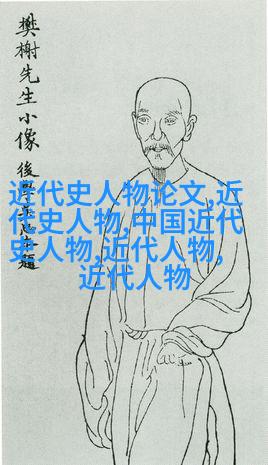 樊榭先生小像
後學
題
近代史人物论文,近
代史人物,中国近代
史人物,近代人物,
近代人物